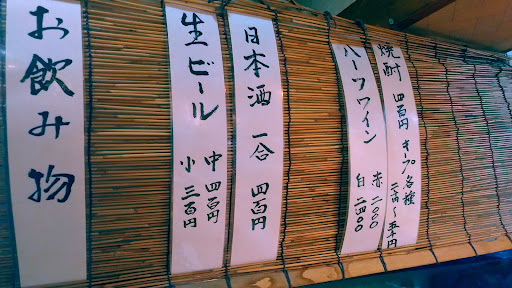 お飲み物
生ビール
中 四百円
小 三百円
日本酒 一合 四百円
焼酎 四百円 キープ各種
ハーフワイン
赤 二〇〇〇
白 二四〇〇